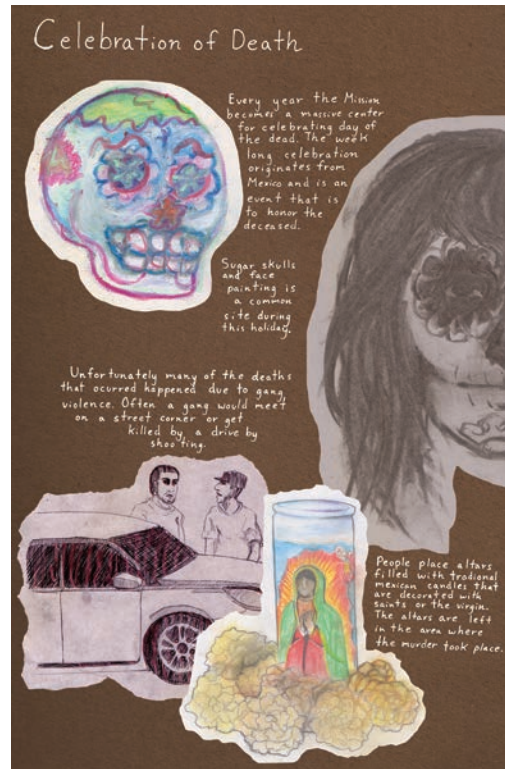 Celebration of Death
Every year the Mission
becomes a massive center
for celebrating day of
the dead. The week
long celebration
originates from
Mexico and is an
event that is
to honor the
deceased.
Sugar skulls
and face
painting is
a common
site during
this holiday.
Unfortunately many of the deaths
that ocurred happened due to gang
violence. Often a gang would meet
on a street corner or get
killed by a drive by
shooting.
People place altars
filled with tradional
mexican candles that
are decorated with
saints or the virgin.
The altars are left
in the area where
the murder took place.